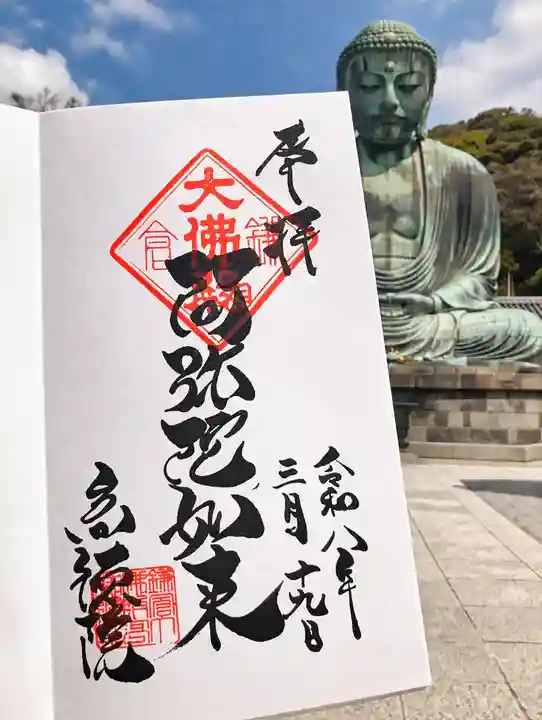 奉拝
令和八年
三月十九日
大佛殿
鎌倉
阿弥陀如来
高徳院